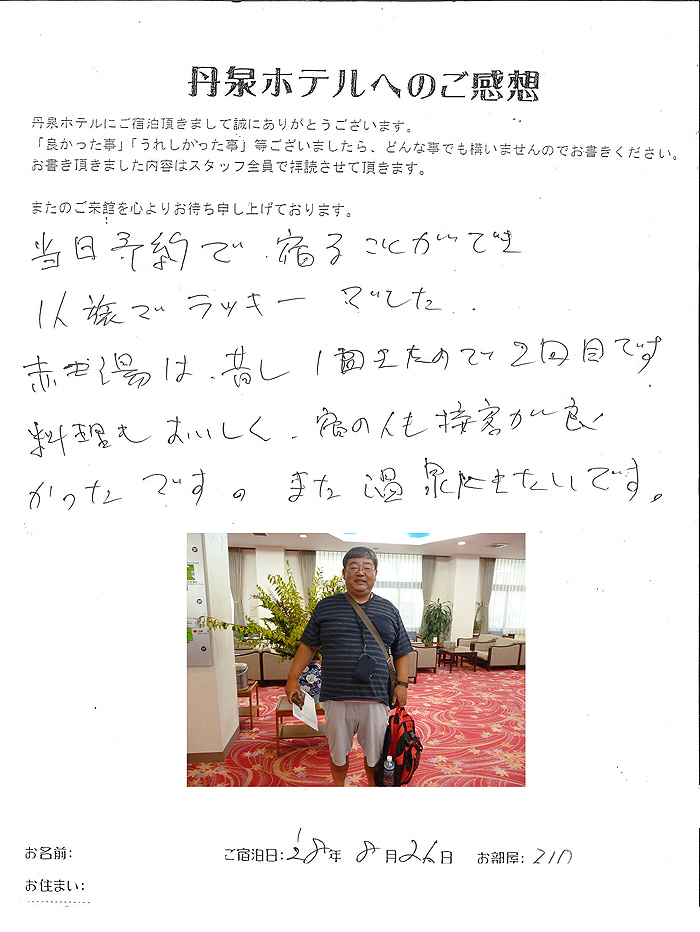 丹泉ホテルへのご感想
丹泉ホテルにご宿泊頂きまして誠にありがとうございます。
「良かった事」「うれしかった事」等ございましたら、どんな事でも構いませんのでお書きください。
お書き頂きました内容はスタッフ全員で拝読させて頂きます。
またのご来館を心よりお待ち申し上げております。
当日予約で、宿ることができ
1人旅でラッキーでした。
赤湯は、昔し1回きたので2回目です
料理もおいしく、宿の人も接客が良
かったです。また温泉にきたいです。
お名前:
ご宿泊日:'28年 8月26日 お部屋: 210
お住まい: